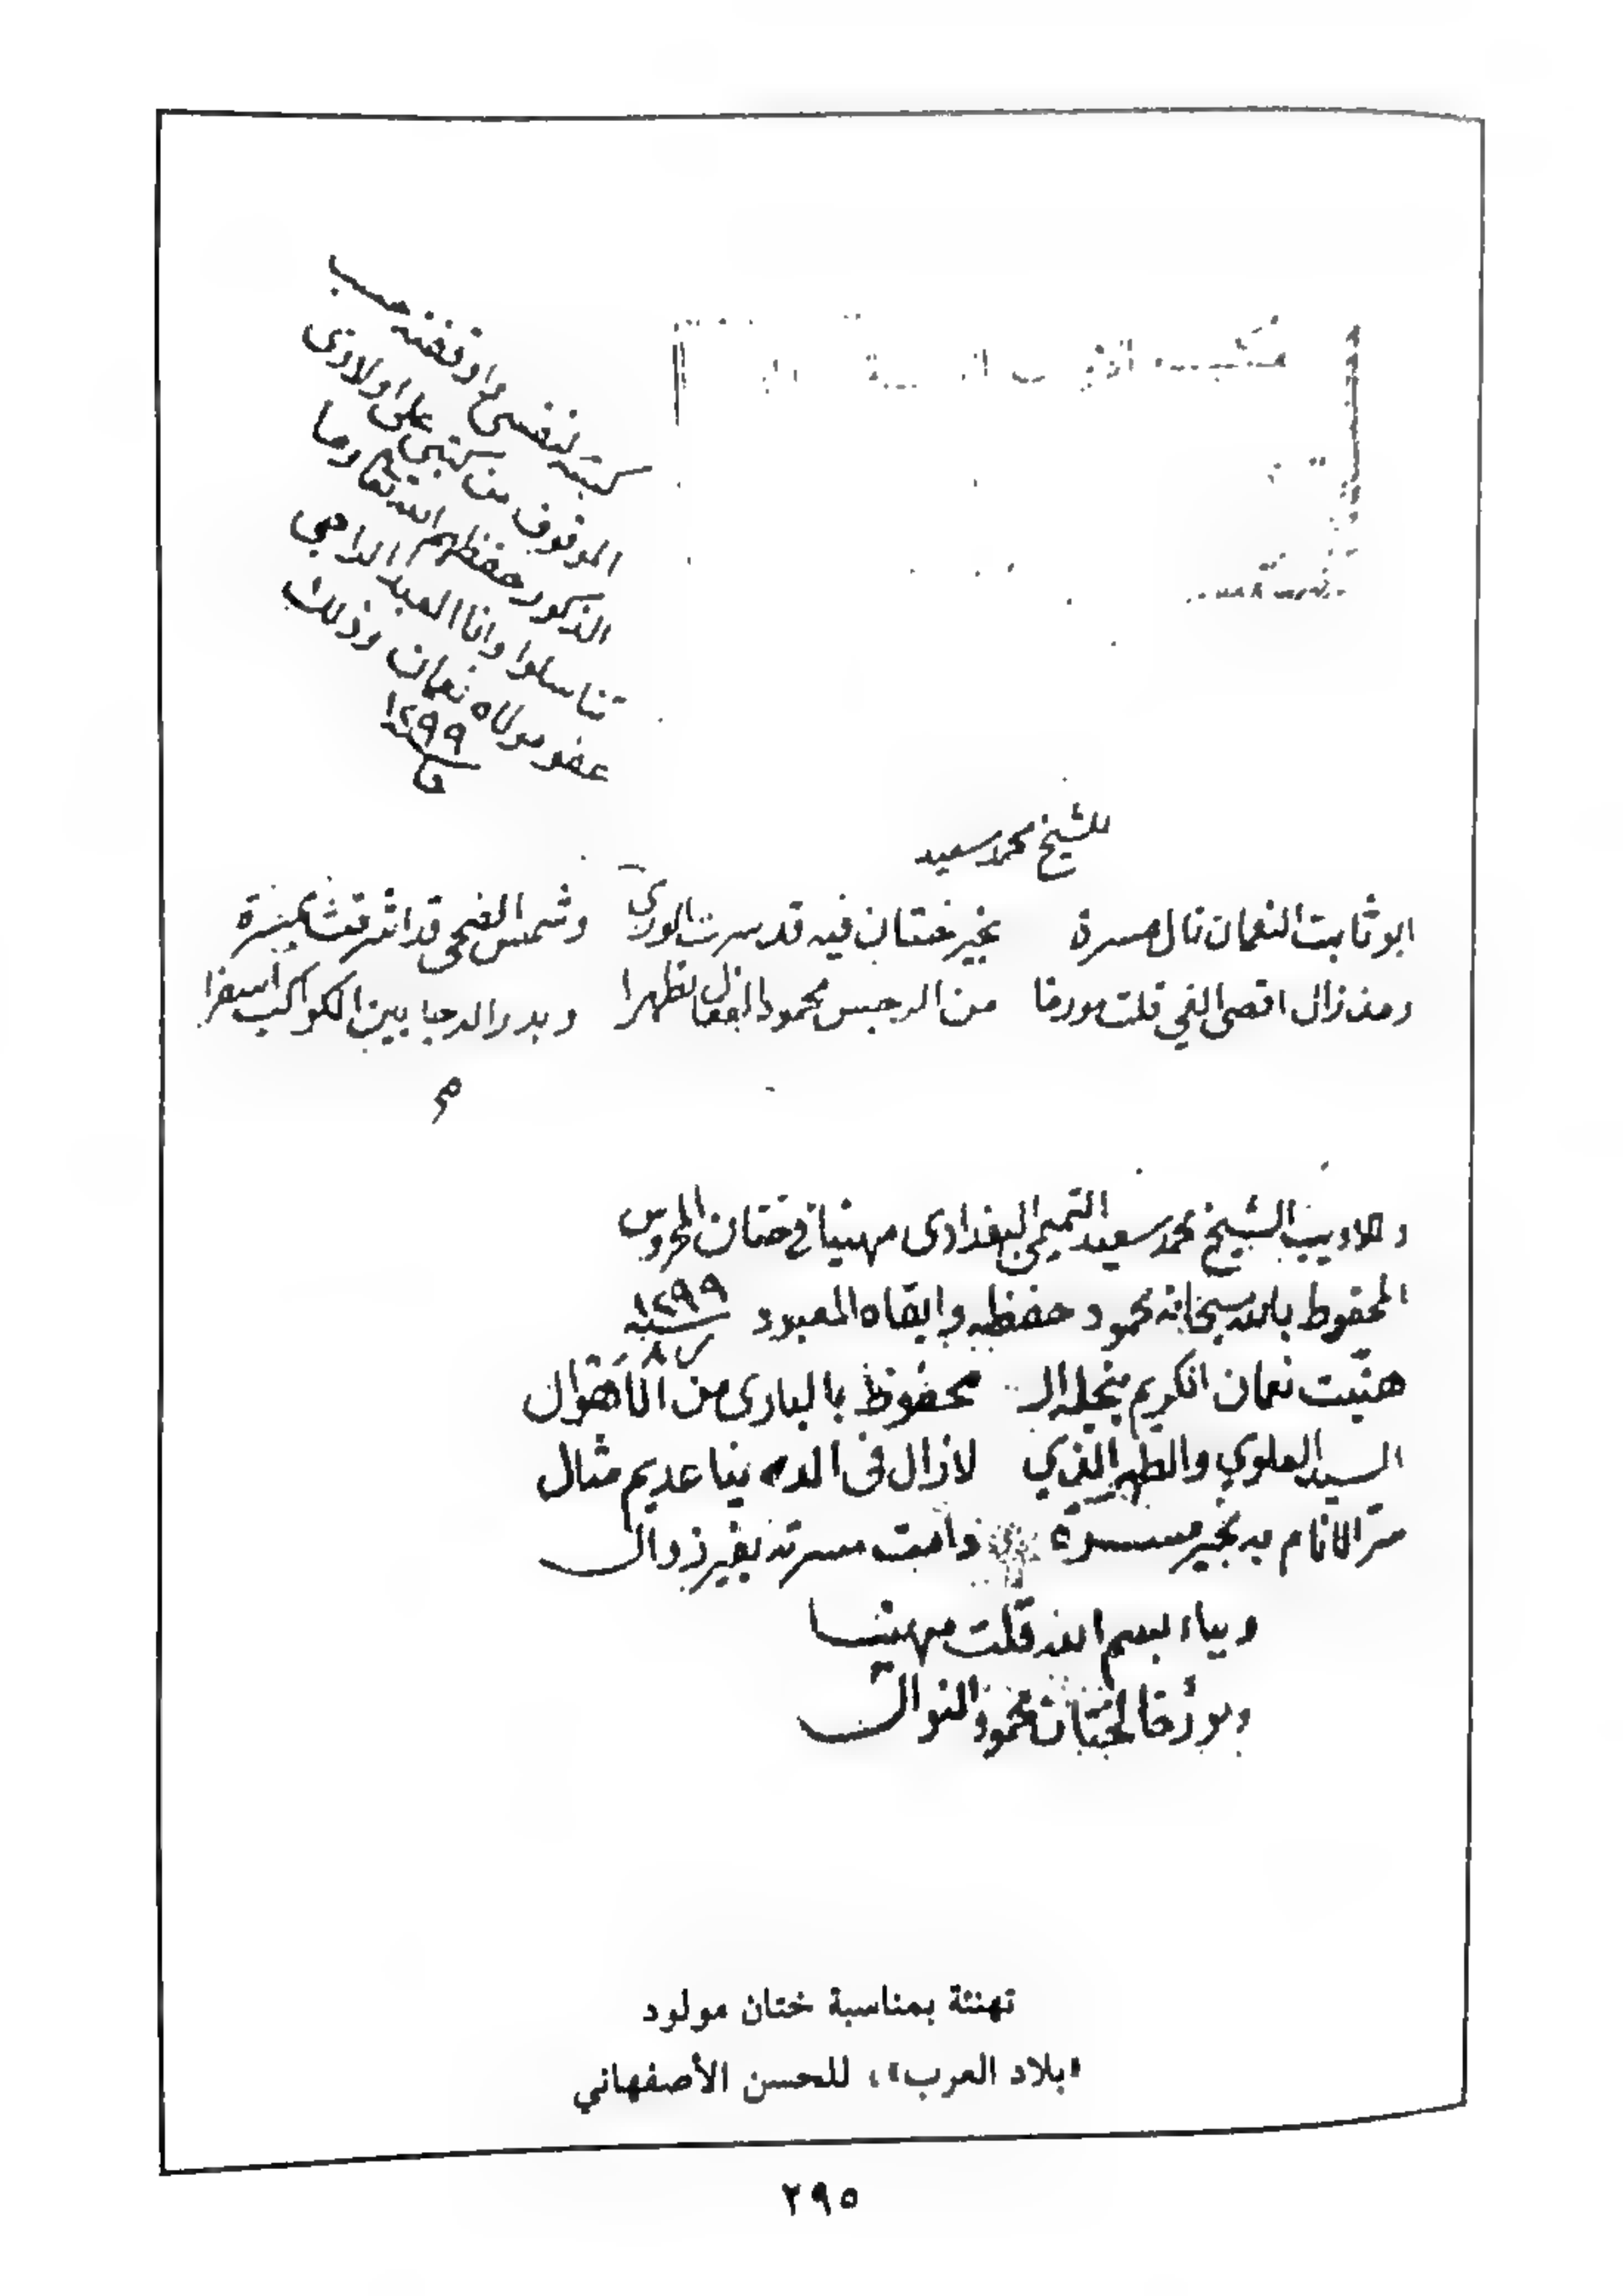 كتبته لنفسي ثم اوقفته حسب
الموقوف من كتبي على اولادى
الذكور حفظهم الله تعالى وما
تناسلوا وانا العبد الراجي
عفو مولاه نعمان وذلك
سنة ١٢٩٩
مكتبة
للشيخ محمد سعيد
ابو ثابت النعمان نال مسرة بخير ختان فيه قد سرت الورى وشمس الضحى قد اشرقت
ومذ زال اقصى قلت مورخا من الرجس محمود الفعال تطهرا وبدر الدجا بين الكواكب اسفرا
وللاديب الشيخ محمد سعيد التميمي البغدادى مهنيا في ختان المحروس
المحفوظ بالله سبحانه محمود حفظه وابقاه المعبود سنة ١٢٩٩
هنّيت نعمان الكريم بنجله الـ محفوظ بالبارى من الأهوال
السيد العلوي والطهر الذي لازال فى عديم مثال
سرّ الانام به بخير مســرة دامت مسرته بغير زوال
وبباء بسم الله قلت مهنيــا
ومورّخا لختان محمود النوال
تهنئة بمناسبة ختان مولود
«بلاد العرب»، للحسن الأصفهاني
٢٩٥